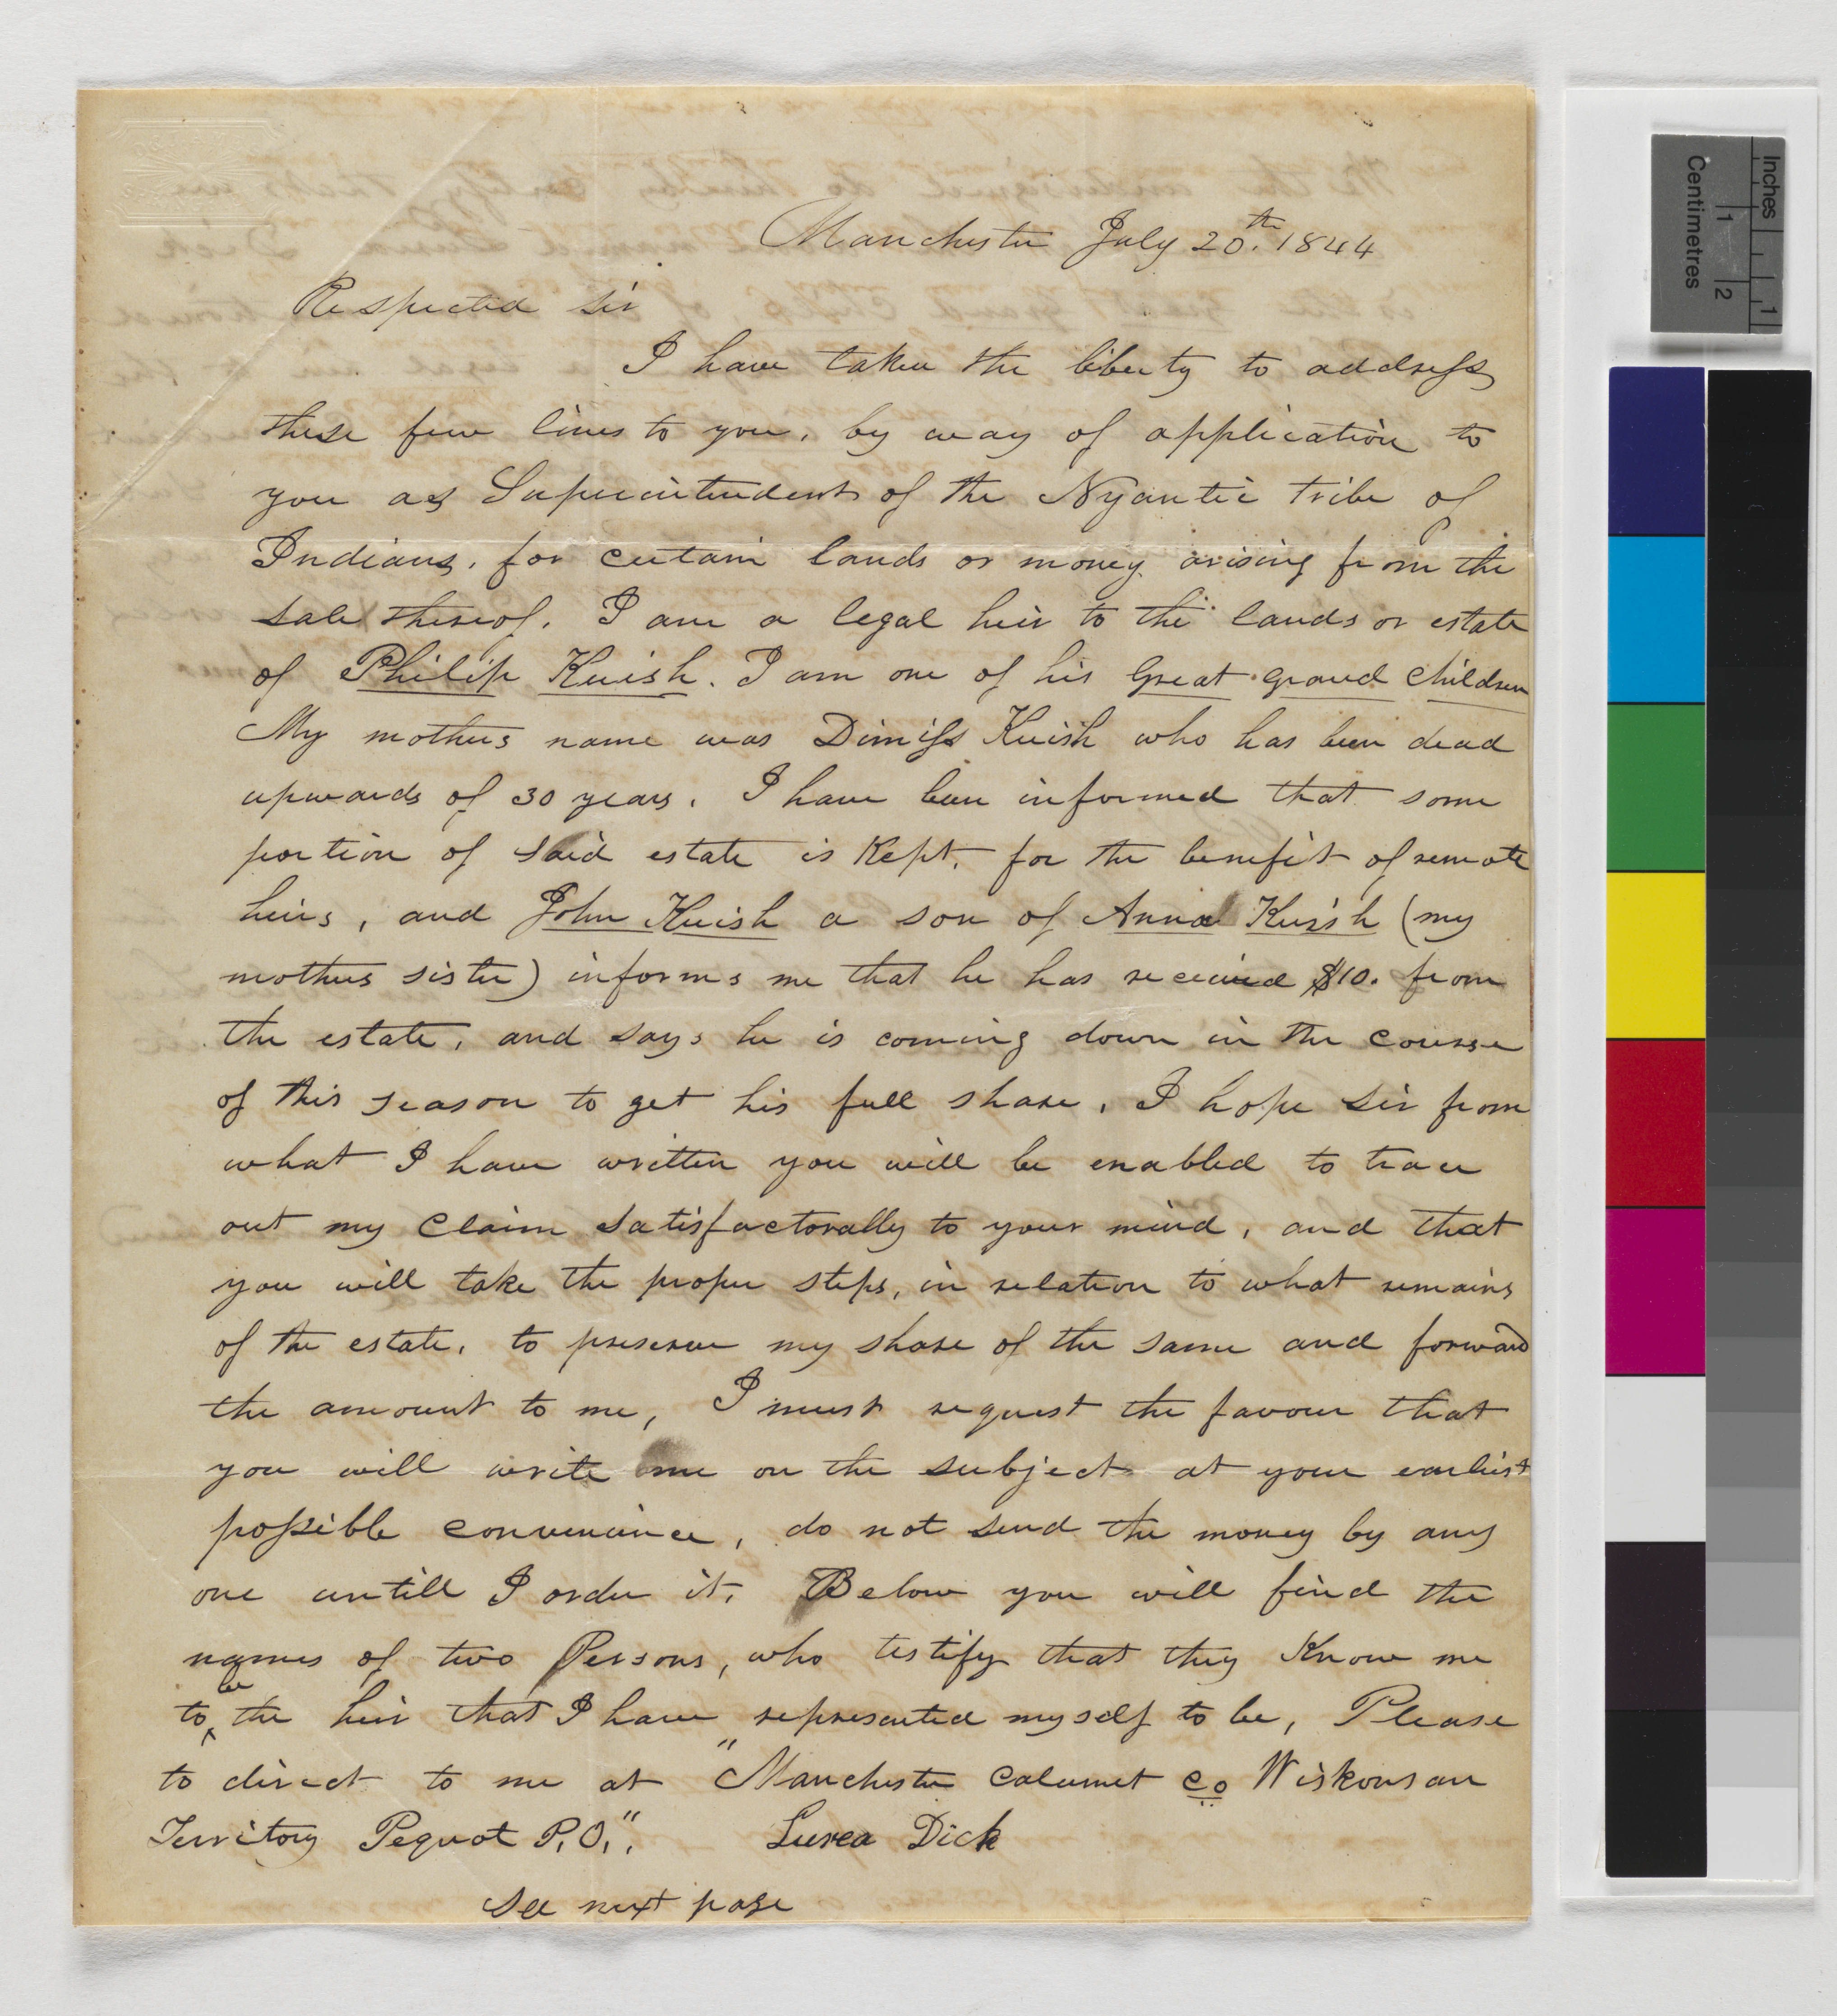 Manchester July 20th. 1844
Respected sir
I have taken the liberty to address
these few lines to you, by way of application to
you as Superintendent of the Nyantic tribe of
Indians, for certain lands or money arising from the
sale thereof. I am a legal heir to the lands or estate
of Philip Kuish. I am one of his Great grand children
My mothers name was Dimiss Kuish who has been dead
upwards of 30 years. I have been informed that some
portion of said estate is Kept, for the benefit of remote
heirs, and John Kuish a son of Anna Kuish (my
mothers sister) informs me that he has received $10. from
the estate, and says he is coming down in the course
of this season to get his full share, I hope sir from
what I have written you will be enabled to trace
out my claim satisfactorally to your mind, and that
you will take the proper steps, in relation to what remains
of the estate, to preserve my share of the same and forward
the amount to me, I must request the favour that
you will write me on the subject at your earliest
possible convenience, do not send the money by any
one untill I order it. Below you will find the
names of two Persons, who testify that they Know me
to be the heir that I have represented myself to be, Please
to direct to me at "Manchester Calumet co Wiskonsan
Territory Pequot P.O.".  Lurea Dick
See next page
Inches
1
Centimetres
1
2